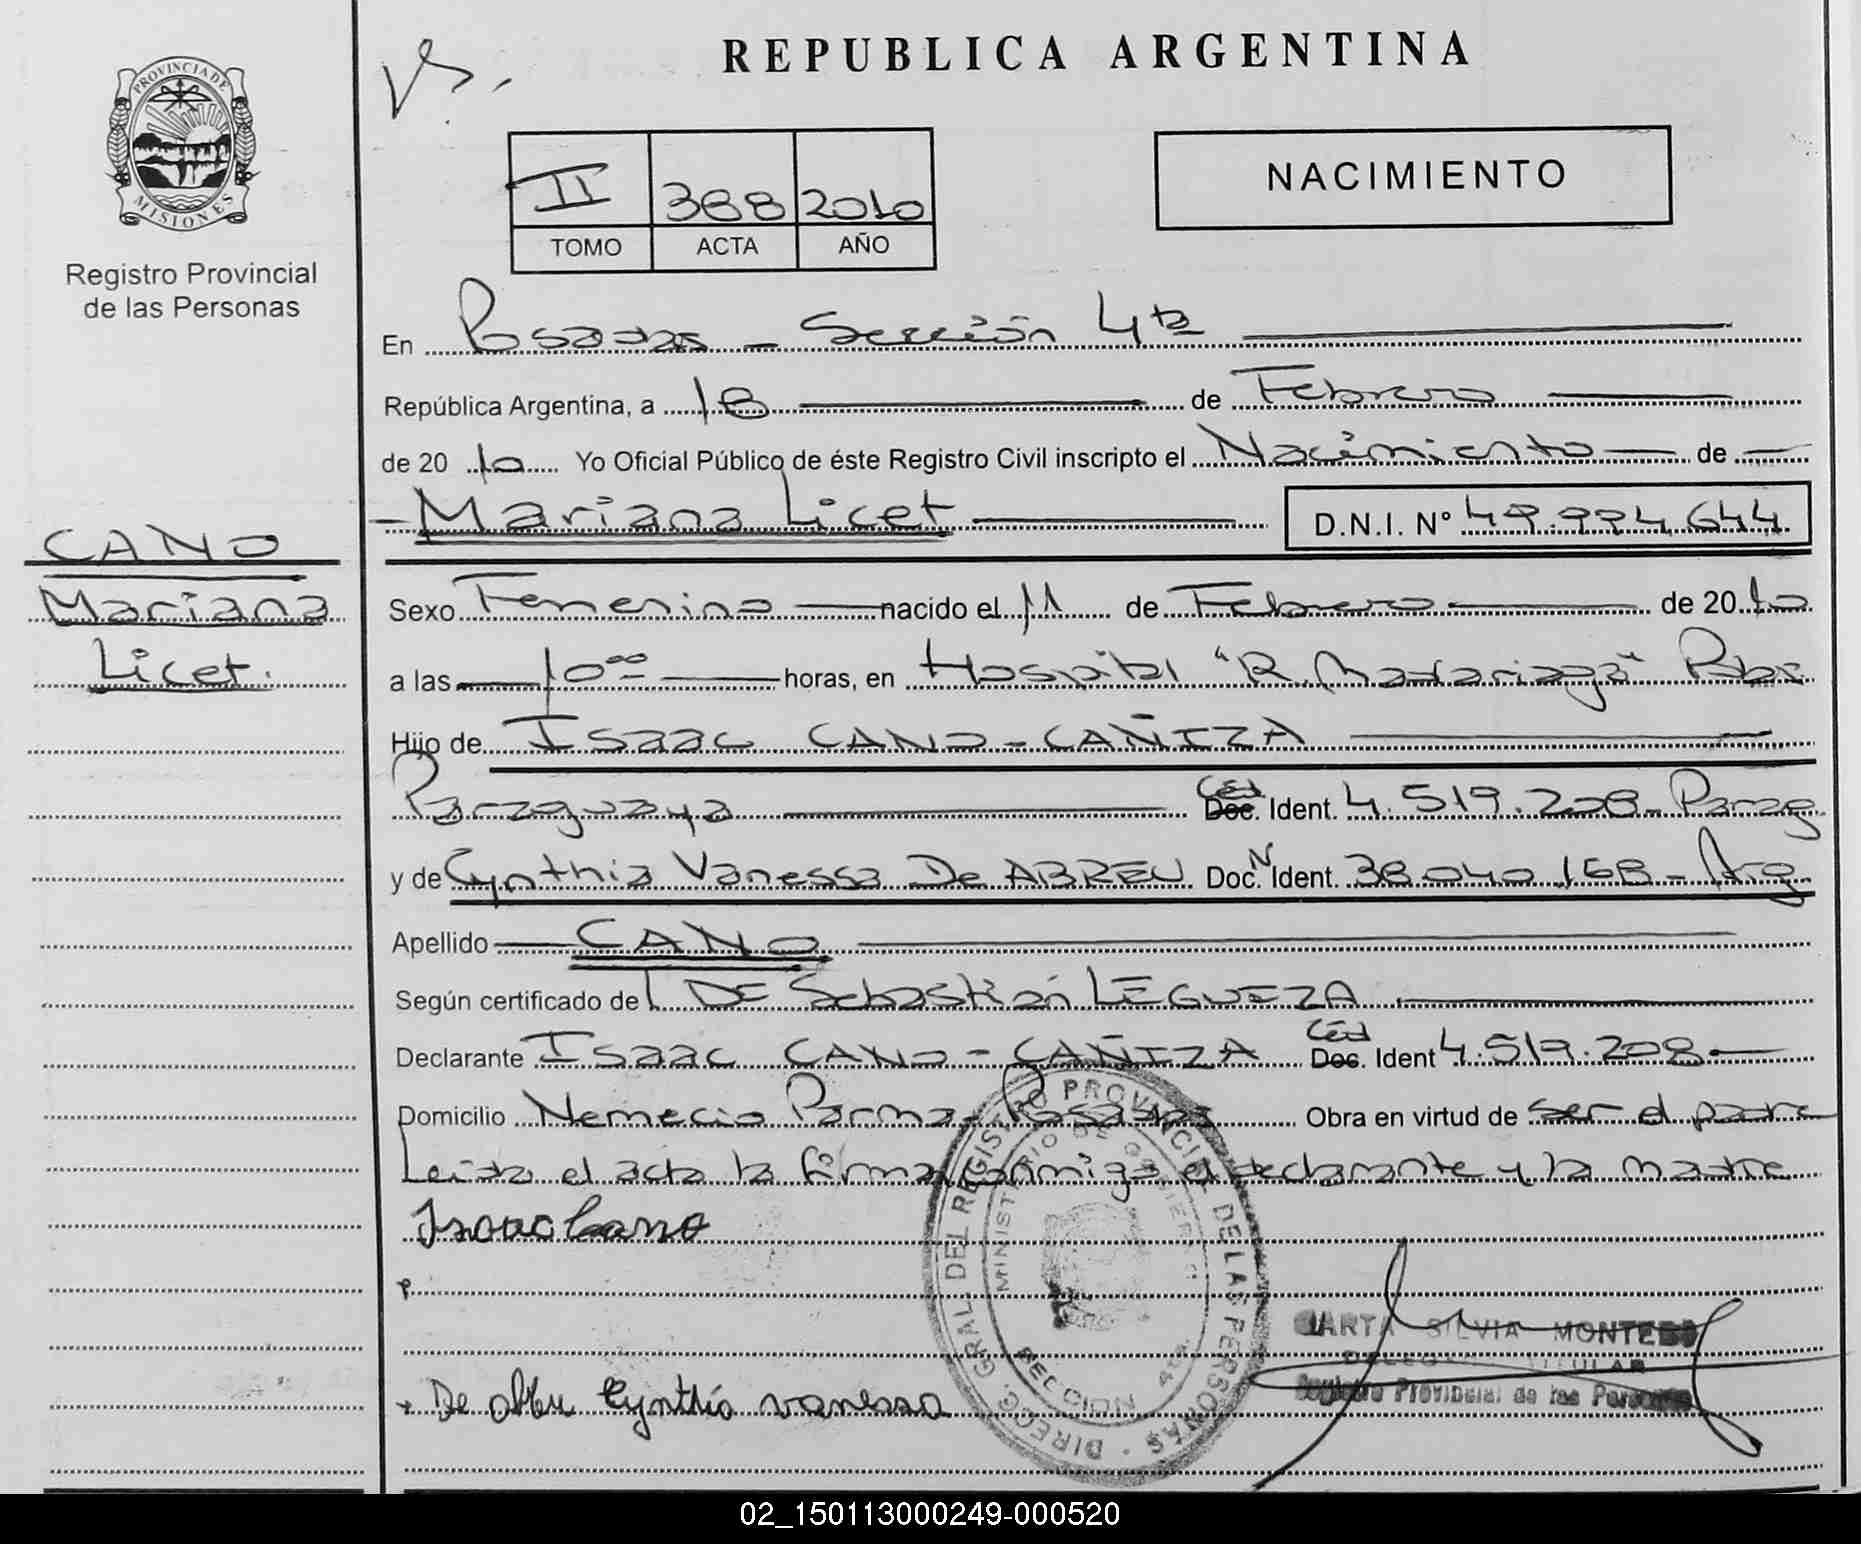 REPUBLICA ARGENTINA
PROVINCIA DE
MISIONES
Registro Provincial
de las Personas
II 388 2010
TOMO ACTA AÑO
NACIMIENTO
En Posadas - Sección 4ta
República Argentina, a 18 de Febrero
de 20 10 Yo Oficial Público de éste Registro Civil inscripto el Nacimiento de
Mariana Licet D.N.I. Nº
CANO
Mariana
Licet.
Sexo Femenino nacido el 11 de Febrero de 20 10
a las 10 00 horas, en Hospital "R. Madariaga" Pdas
Hijo de ISAAC CANO - CAÑIZA
Paraguaya Céd Doc. Ident. 4.519.208 - Parag
y de Cynthia Vanessa De ABREU Doc. N Ident. 38.040.168 - Arg
Apellido CANO
Según certificado de DE Sebastián LEGUIZA
Declarante ISAAC CANO - CAÑIZA Céd Doc. Ident 4.519.208
Domicilio Nemecio Parma - Posadas Obra en virtud de ser el padre
Leida el acta la firma conmigo el declarante y la madre
Isaac Cano
De abreu Cynthia vanessa
DIRECC. GRAL. DEL REGISTRO PROVINCIAL DE LAS PERSONAS
MINISTERIO DE GOBIERNO
SECCION 4ta.
SILVIA MONTERO
TITULAR
Registro Provincial de las Personas
02_150113000249-000520